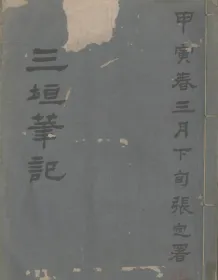 甲寅春三月下旬張定署
三垣筆記